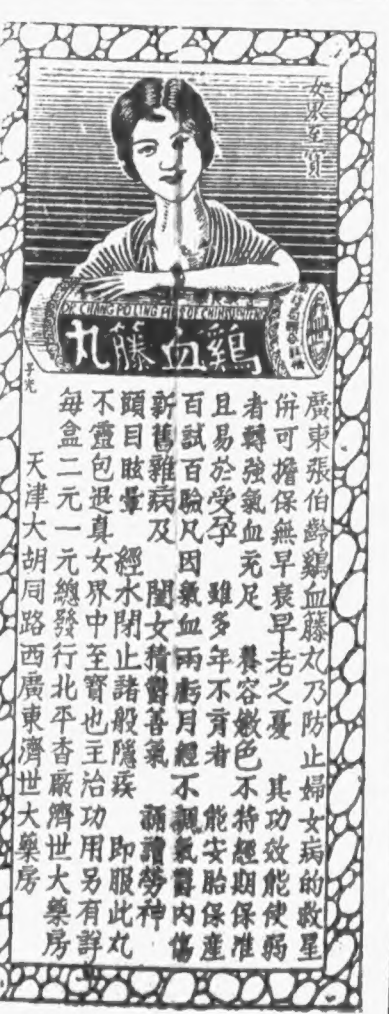 女界至寶
DR. CHANG PO LING PILLS OF
鷄血藤丸
廣東張伯齡鷄血藤丸乃防止婦女病的救星
併可擔保無早衰早老之憂 其功效能使弱
者轉強氣血充足 養容嫩色不特經期保准
且易於受孕 雖多年不育者 能安胎保產
百試百驗凡因氣血兩虧月經不調氣鬱內傷
新舊雜病及 閨女積鬱善氣 誦讀勞神
頭目眩暈 經水閉止諸般隱疾 即服此丸
不靈包退真女界中至寶也主治功用另有詳
每盒二元一元總發行北平香廠濟世大藥房
天津大胡同路西廣東濟世大藥房